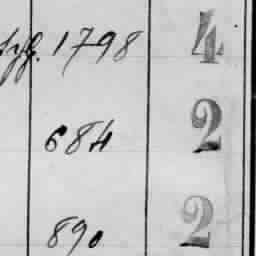 1798 4
684 2
890 2